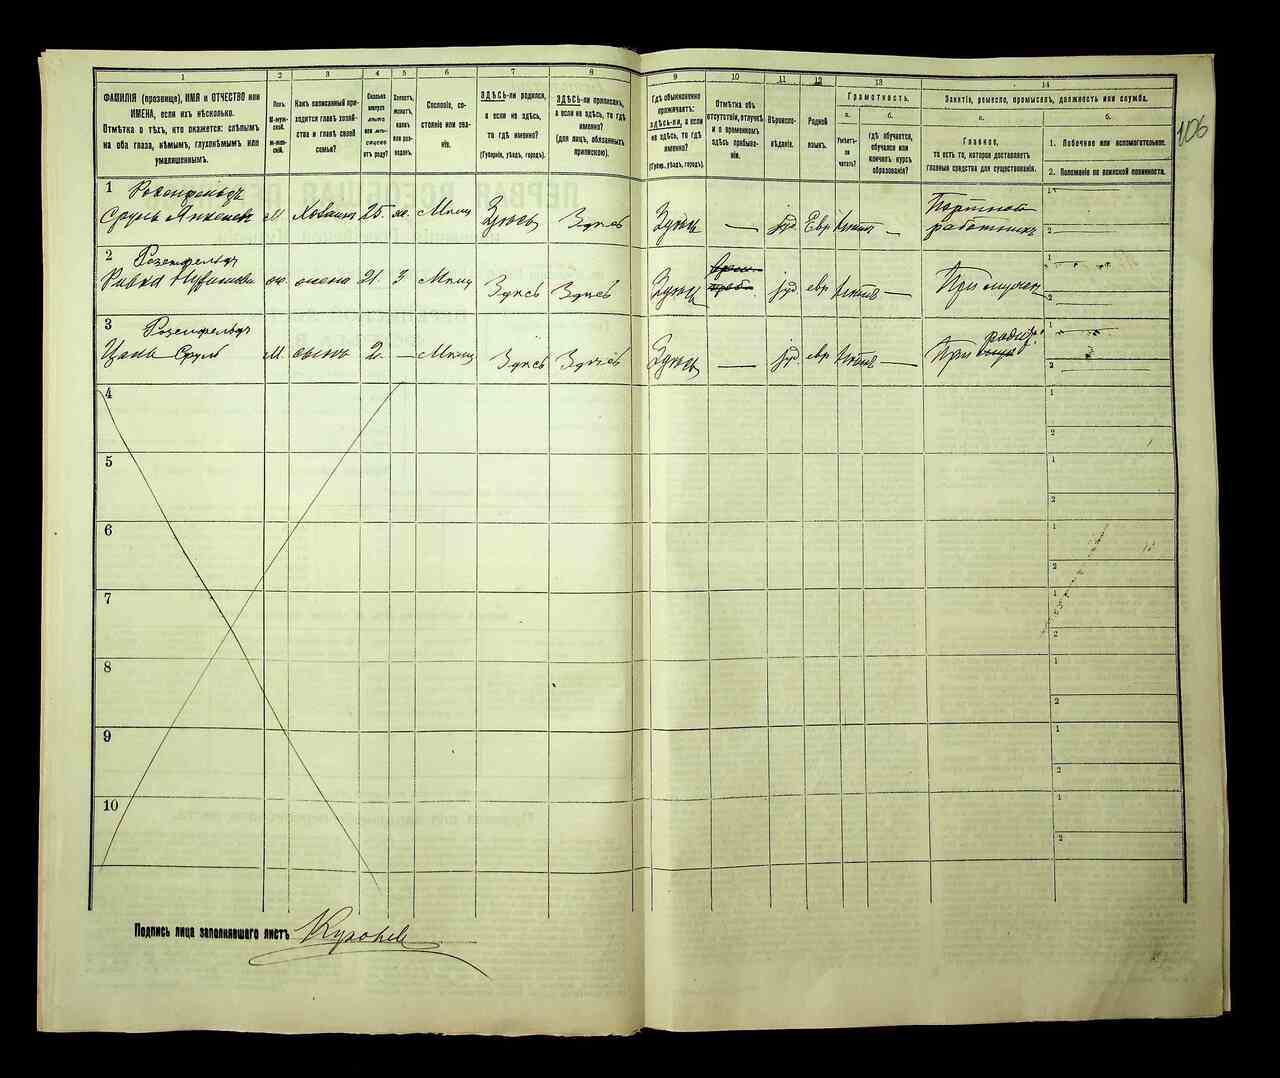 1
2
3
4
5
6
7
8
9
10
11
12
13
14
106
ФАМИЛІЯ (прозвище), ИМЯ и ОТЧЕСТВО или
ИМЕНА, если ихъ нѣсколько.
Отмѣтка о тѣхъ, кто окажется: слѣпымъ
на оба глаза, нѣмымъ, глухонѣмымъ или
умалишеннымъ.
Полъ.
М-муж-
ской.
Ж-жен-
скій.
Какъ записанный при-
ходится главѣ хозяй-
ства и главѣ своей
семьи?
Сколько
минуло
лѣтъ
или мѣ-
сяцевъ
отъ роду?
Холостъ,
женатъ,
вдовъ
или раз-
веденъ.
Сословіе, со-
стояніе или зва-
ніе.
ЗДѢСЬ-ли родился,
а если не здѣсь,
то гдѣ именно?
(Губернія, уѣздъ, городъ).
ЗДѢСЬ-ли приписанъ,
а если не здѣсь, то гдѣ
именно?
(для лицъ, обязанныхъ
припискою).
Гдѣ обыкновенно
проживаетъ:
ЗДѢСЬ-ли, а если
не здѣсь, то гдѣ
именно?
(Губерн., уѣздъ, городъ).
Отмѣтка объ
отсутствіи, отлучкѣ
и о временномъ
здѣсь пребыва-
ніи.
Вѣроиспо-
вѣданіе.
Родной
языкъ.
Грамотность.
а.
б.
Умѣетъ-
ли
читать?
гдѣ обучается,
обучался или
кончилъ курсъ
образованія?
Занятіе, ремесло, промыселъ, должность или служба.
а.
б.
Главное,
то есть то, которое доставляетъ
главныя средства для существованія.
1. Побочное или вспомогательное.
2. Положеніе по воинской повинности.
1
Розенфельдъ
Сруль Янкелев М 25 Мѣщ Здѣсь Здѣсь Здѣсь — іуд Евр —
Портной
работникъ
1
2
2
Розенфельдъ
Ривка жена 21 З Мѣщ Здѣсь Здѣсь Здѣсь іуд евр — При мужѣ
1
2
3
Розенфельдъ
Сруль М сынъ 2 — Мѣщ Здѣсь Здѣсь Здѣсь — іуд евр — При
1
2
4
1
2
5
1
2
6
1
2
7
1
2
8
1
2
9
1
2
10
1
2
Подпись лица заполнявшаго листъ